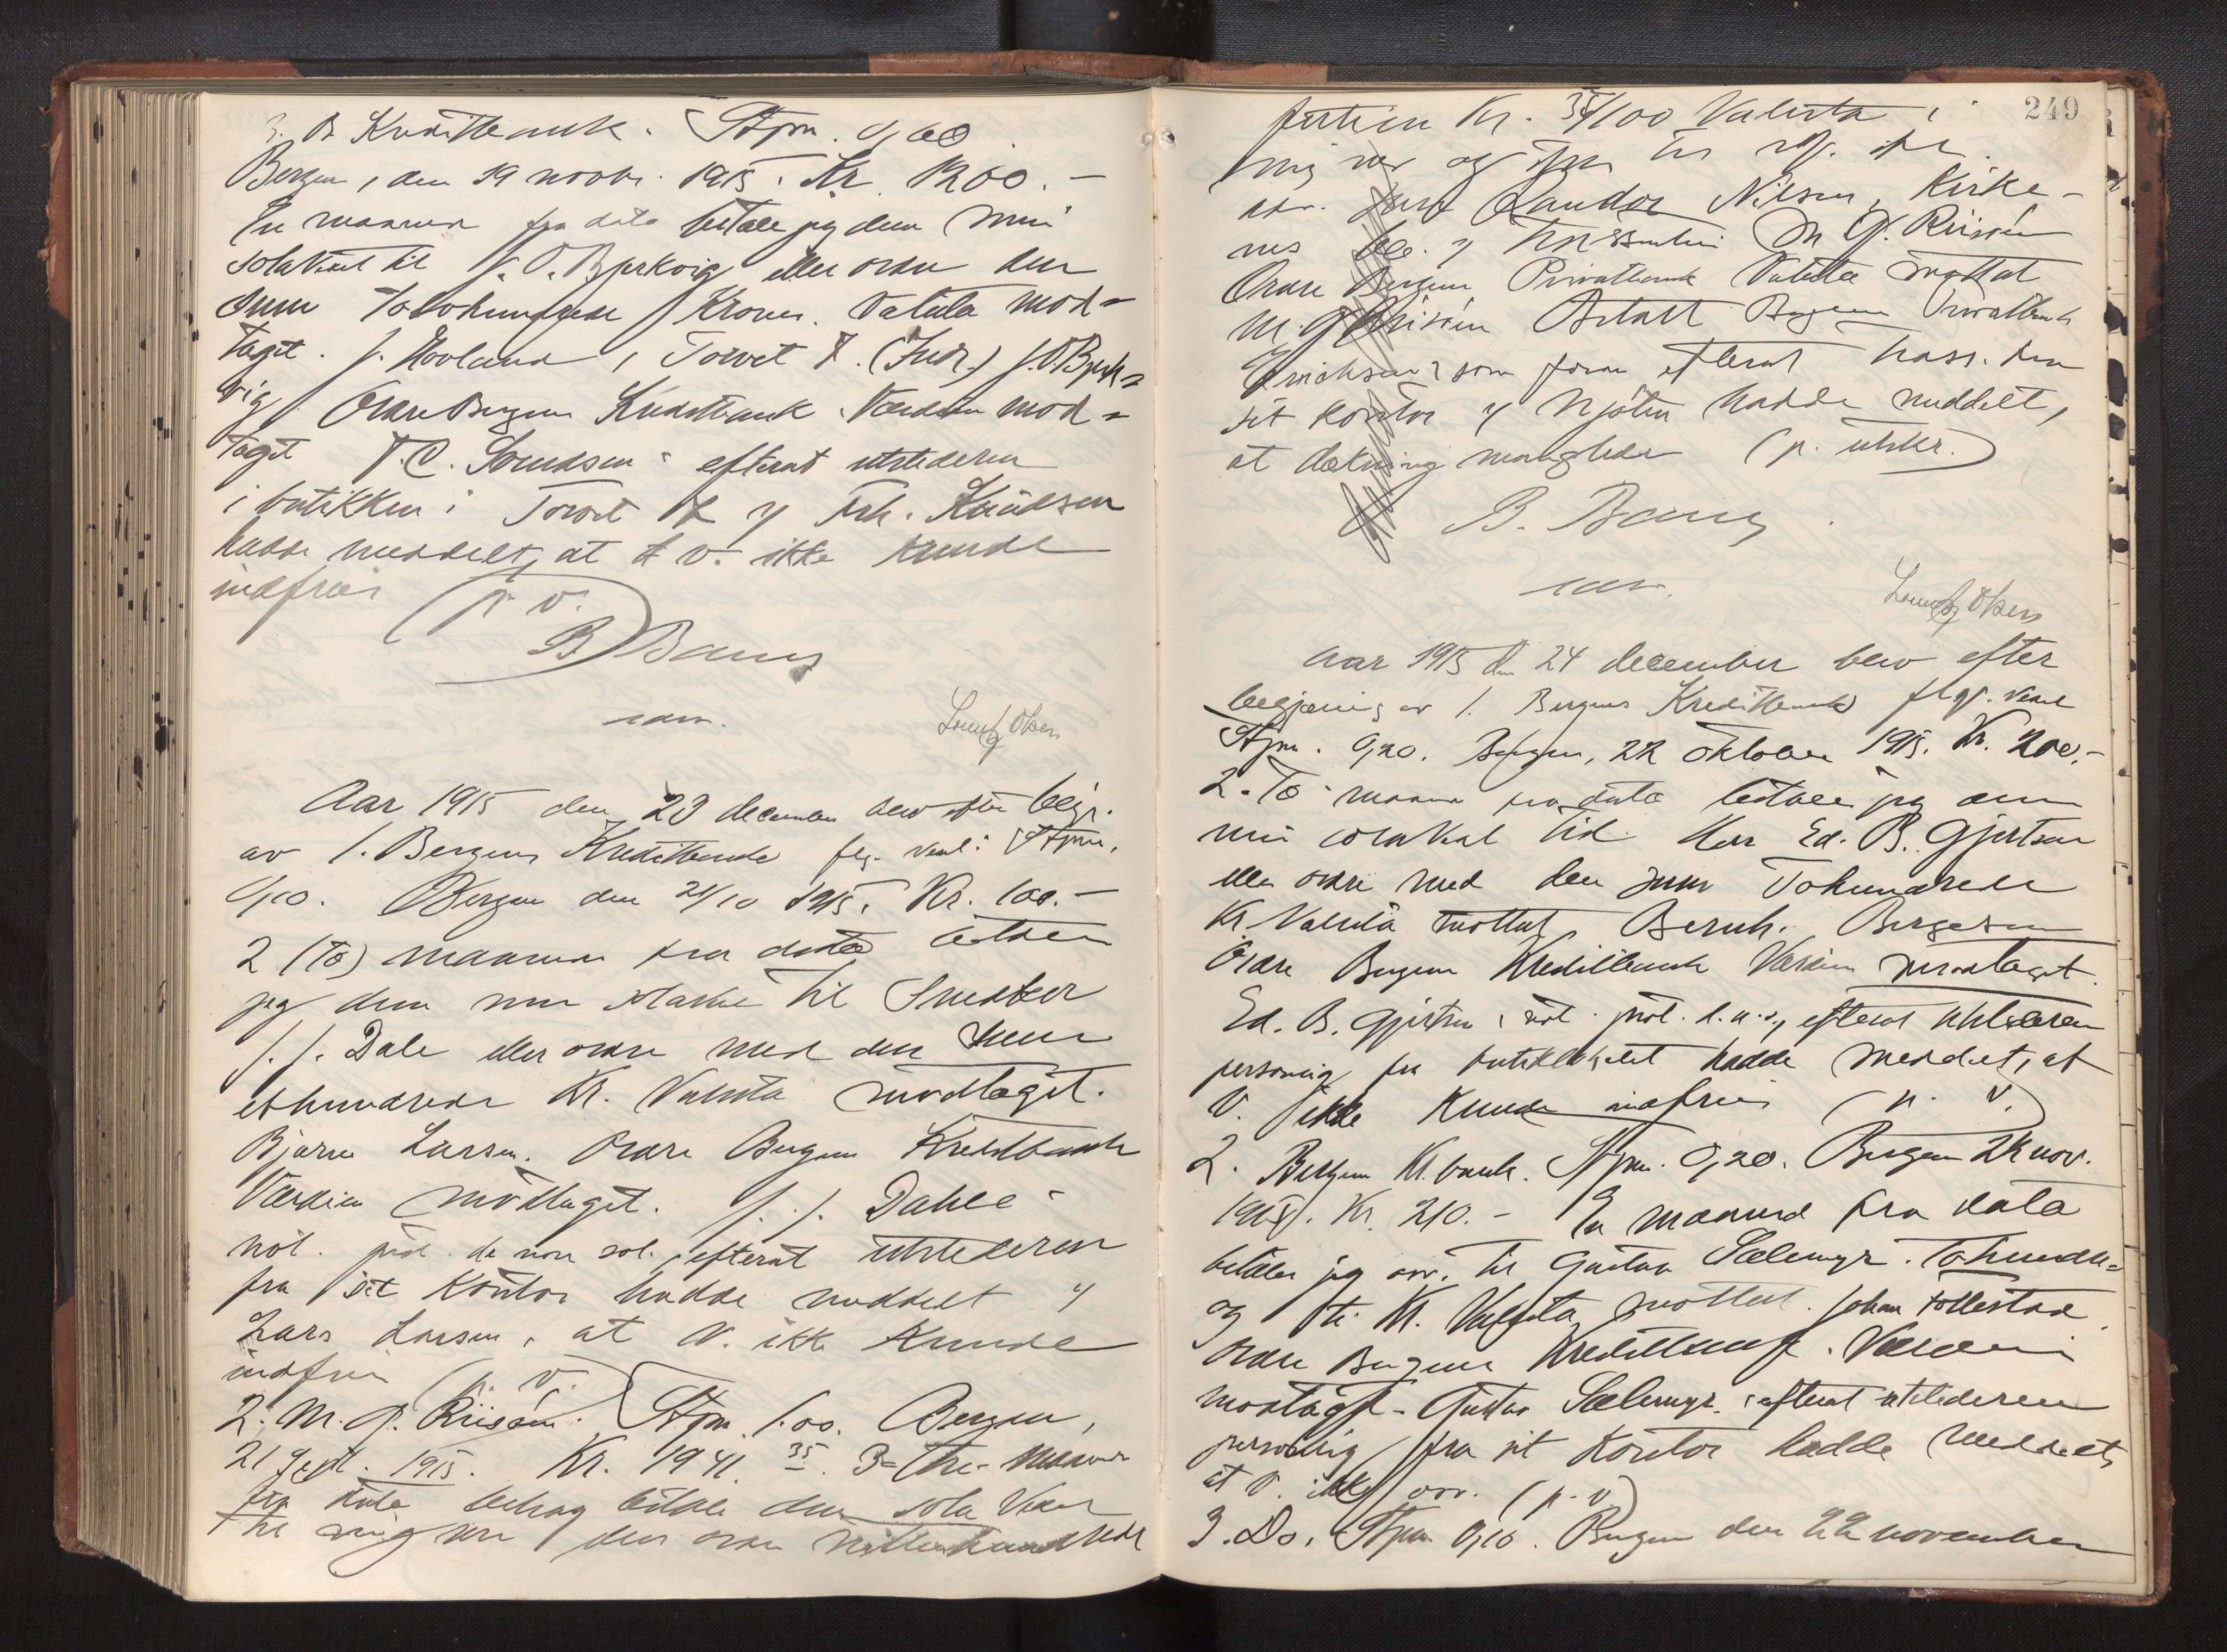 3. B Kreditbank. Stpm. 0,60
Bergen, den 19 novbr. 1915. Kr. 1200.-
En maaned fra dato betaler jeg denne min
solaveksel til J. O. Bjerkvig eller ordre den
sum Tolvhundrede Kroner. Valuta mod-
taget. J. Hovland, Torvet 7. (Indr.) J. O. Bjerk-
vig Ordre Bergens Kreditbank. Værdien mod-
taget T. C. Svendsen: efterat utstederen
i butikken i Torvet 7 v/ Frk. Knudsen
hadde meddelt, at d v. ikke kunde
indfries (p. v.)
B Bang
Aar 1915 den 23 december blev efter begj.
av 1. Bergens Kreditbank flg. veksl: Stpm.
0,10. Bergen den 21/10 1915. Kr. 100.-
2 (to) maaneder fra dato betaler
jeg denne min solaveksel til Snedker
J. J. Dale eller ordre med den sum
ethundrede Kr. Valuta modtaget.
Bjarne Larsen. Ordre Bergens Kreditbank
Værdien modtaget. J. J. Dahle
not. prot. de non sol., efterat utstederen
fra sit kontor hadde meddelt v/
Lars Larsen, at v. ikke kunde
indfries (p. v.)
2. M. G. Riisøen. Stpm. 1.00. Bergen,
21 Sept. 1915. Kr. 1941 35. 3 - Tre - maaneder
fra dato behag betale denne sola veksel
til mig selv eller ordre Nittenhundrede
249
førtien Kr. 35/100 Valuta i
mig selv og
Sandor Nilsen, Kirke-
nes M. G. Riisøen
Ordre Bergens Privatbank Valuta mottat
M. G. Riisøen Betalt Bergens Privatbank
Erichsen: som foran efterat trass. fra
sit kontor v/ hadde meddelt,
at dækning manglede (p. utstr.)
B. Bang
Aar 1915 den 24 december blev efter
begjæring av 1. Bergens Kreditbank flgd. veksl
Stpm. 0,20. Bergen, 22 oktober 1915. Kr. 200.-
2. To maaneder fra dato betaler jeg denne
min solaveksel til Herr Ed. B. Gjertsen
eller ordre med den sum Tohundrede
Kr. Valuta mottat Bernh. Birgesen
Ordre Bergens Kreditbank Værdien modtaget.
Ed. B. Gjertsen: not. prot. d.n.s., efterat utstederen
personlig fra butiklokalet hadde meddelt, at
v. ikke kunde indfries (p. v.)
2. Bergens Kr.bank. Stpm. 0,20. Bergen 22 nov.
1915. Kr. 210.- En maaned fra dato
betaler jeg osv. til Gustav Sælemyr. Tohundre-
og ti Kr. Valuta mottat. Johan Tollestad
Ordre Bergens Kreditbank. Værdien
modtaget - Gustav Sælemyr: efterat utstederen
personlig fra sit kontor hadde meddelt,
at v. ikke osv. (p. v.)
3. Do. Stpm. 0,10. Bergen den 22 november